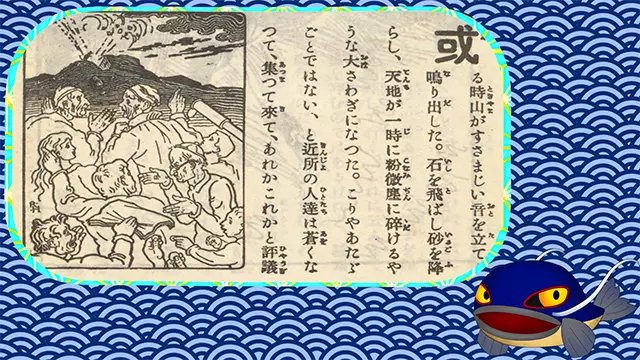 或る時山がすさまじい音を立て
鳴り出した。石を飛ばし砂を降
らし、天地が一時に粉微塵に碎けるや
うな大さわぎになつた。こりやあたゞ
ごとではない、と近所の人達は蒼くな
つて、集つて來て、あれかこれかと評議